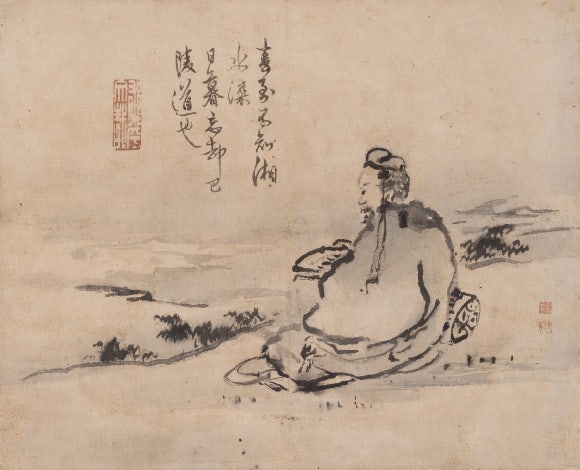 喜至不知湘
水深
日暮忘却巴
陵道也